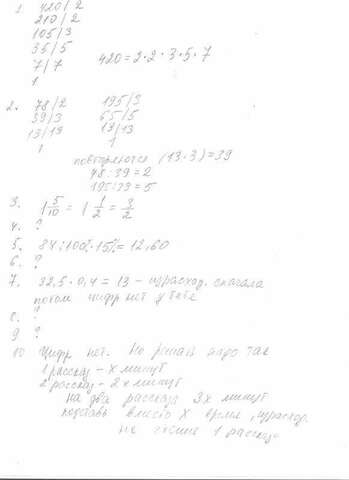 1. 420/2
210/2
105/3
35/5
7/7 420 = 2·2·3·5·7
1
2. 78/2 195/3
39/3 65/5
13/13 13/13
1 1
повторяются (13·3)=39
48:39=2
195:39=5
3. 1 5/10 = 1 1/2 = 3/2
4. ?
5. 84:100%·15%=12,60
6. ?
7. 32,5·0,4=13 – израсход. сначала
потом цифр нет у тебя
8. ?
9. ?
10 Цифр нет. Но решать надо так
1 рассказ – х минут
2 рассказ – 2х минут
На два рассказа 3х минут
подставь вместо Х время, израсход.
на 1 рассказ